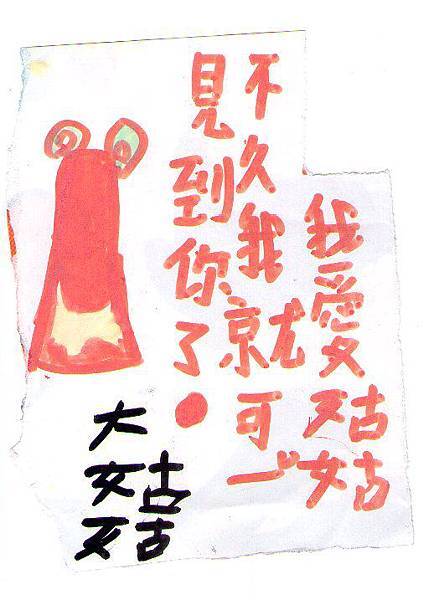 我愛姑姑
不久我就可ㄧˇ
見到你了。
大姑姑